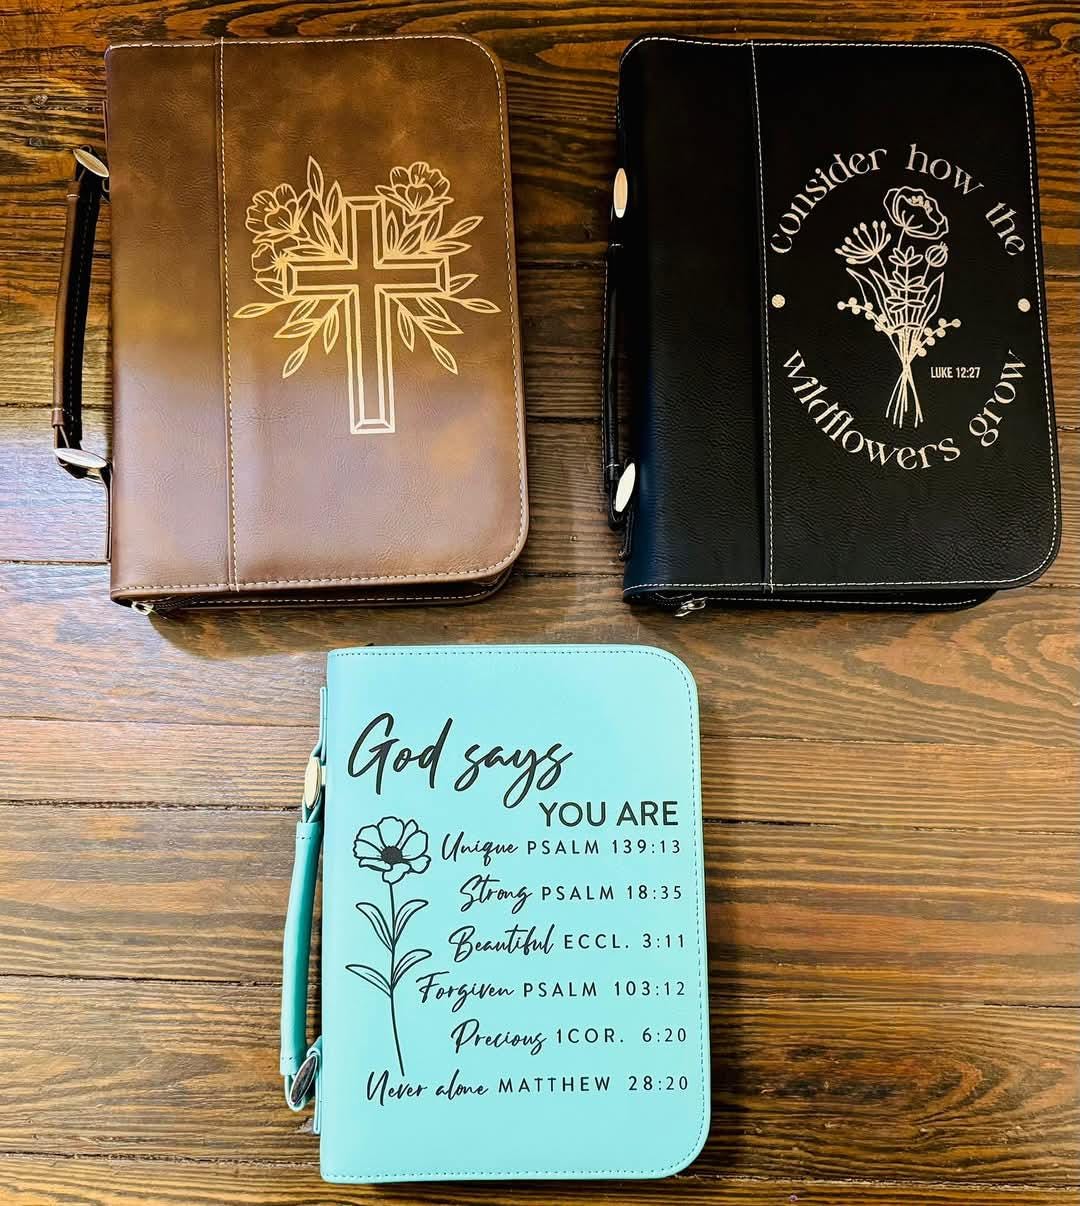 consider how the
wildflowers grow
LUKE 12:27
God says
YOU ARE
Unique PSALM 139:13
Strong PSALM 18:35
Beautiful ECCL. 3:11
Forgiven PSALM 103:12
Precious 1COR. 6:20
Never alone MATTHEW 28:20